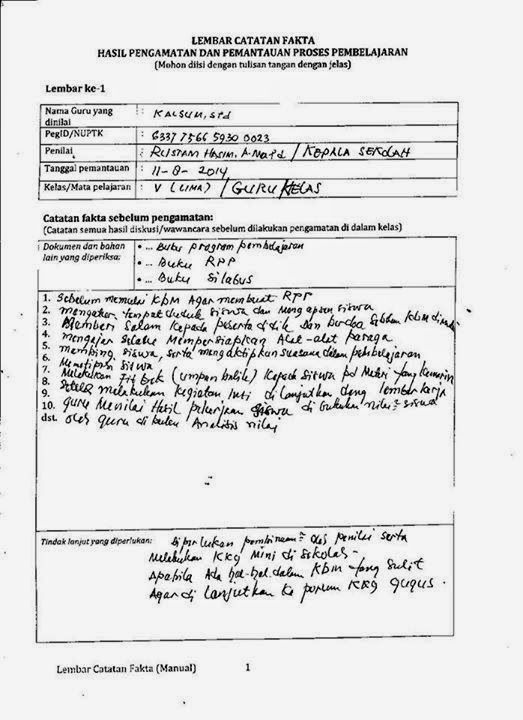 LEMBAR CATATAN FAKTA
HASIL PENGAMATAN DAN PEMANTAUAN PROSES PEMBELAJARAN
(Mohon diisi dengan tulisan tangan dengan jelas)
Lembar ke-1
Nama Guru yang dinilai : KALSUM, S.Pd
PegID/NUPTK : 6337 7566 5930 0023
Penilai : RUSTAM HASIM, A.Ma.Pd / KEPALA SEKOLAH
Tanggal pemantauan : 11-8-2014
Kelas/Mata pelajaran : V (LIMA) / GURU KELAS
Catatan fakta sebelum pengamatan:
(Catatan semua hasil diskusi/wawancara sebelum dilakukan pengamatan di dalam kelas)
Dokumen dan bahan lain yang diperiksa:
• ... Buku program pembelajaran
• ... Buku RPP
• ... Buku Silabus
1. Sebelum memulai KBM Agar membuat RPP
2. mengatur tempat duduk siswa dan mengapsen siswa
3. Memberi Salam kepada peserta didik dan berdoa Sebelum KBM
4. mengajar Selalu Mempersiapkan Alat-alat peraga
5. siswa, serta mengaktipkan suasana dalam pembelajaran
6. siswa
7. Melakukan (umpan balik) kepada siswa pd Materi yang kemarin
8. melakukan kegiatan Inti di lanjutkan deng lembar kerja
9. siswa
10. guru Menilai Hasil pekerjaan siswa di bukukan nilai²
dst. oleh guru di buku Analisis nilai
Tindak lanjut yang diperlukan: Diperlukan pembinaan² dari penilai serta
Melakukan KKG Mini di Sekolah -
Apabila Ada hal-hal dalam KBM yang Sulit
Agar di lanjutkan ke porum KKG gugus.
Lembar Catatan Fakta (Manual) 1